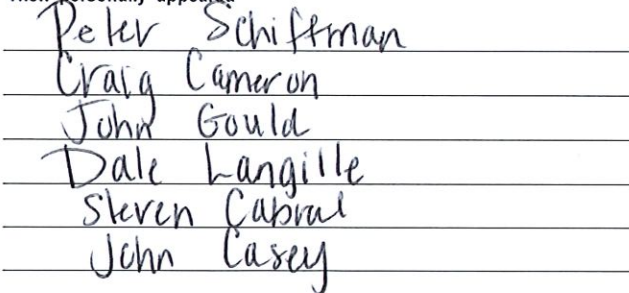 Then personally appeared
Peter Schiffman
Craig Cameron
John Gould
Dale Langille
Steven Cabral
John Casey